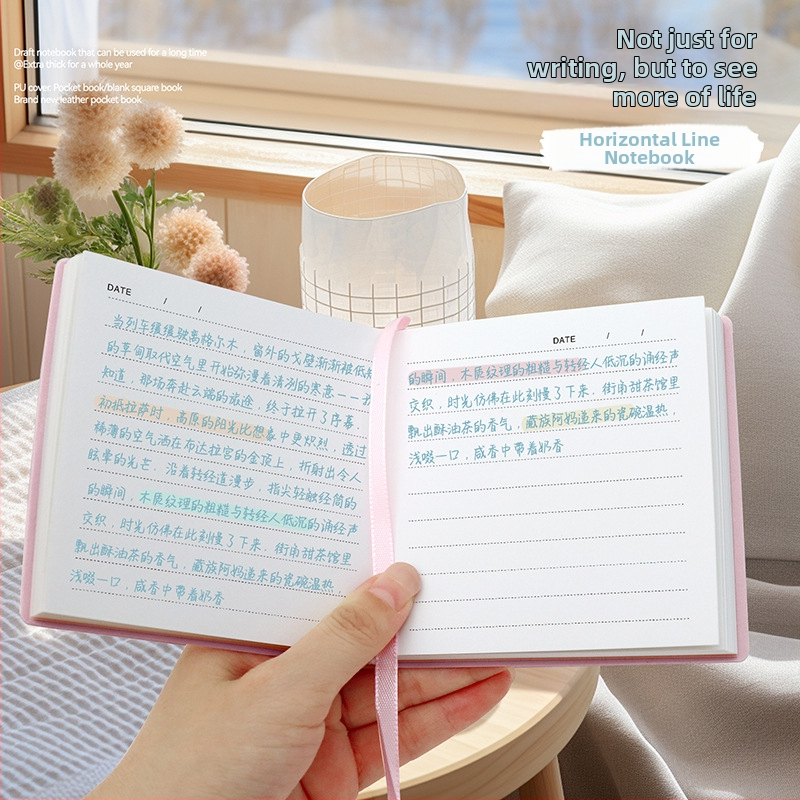 Draft notebook that can be used for a long time
@Extra thick for a whole year
PU cover Pocket book/blank square book
Brand new leather pocket book
Not just for
writing, but to see
more of life
Horizontal Line
Notebook
DATE / /
当列车缓缓驶离格尔木，窗外的戈壁渐渐被低矮
的草甸取代空气里开始弥漫着清冽的寒意——
知道，那场奔赴云端的旅途，终于拉开了序幕.
初抵拉萨时，高原的阳光比想象中更炽烈，透过
稀薄的空气洒在布达拉宫的金顶上，折射出令人
眩晕的光芒. 沿着转经道漫步，指尖轻触经筒的
的瞬间，木质纹理的粗糙与转经人低沉的诵经声
交织，时光仿佛在此刻慢了下来. 街角甜茶馆里
飘出酥油茶的香气，藏族阿妈递来的瓷碗温热
浅啜一口，咸香中带着奶香
DATE / /
的瞬间，木质纹理的粗糙与转经人低沉的诵经声
交织，时光仿佛在此刻慢了下来. 街角甜茶馆里
飘出酥油茶的香气，藏族阿妈递来的瓷碗温热，
浅啜一口，咸香中带着奶香